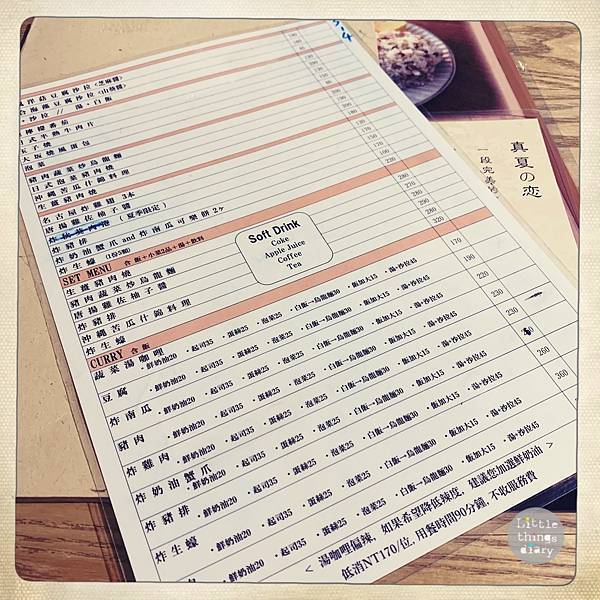 洋菇豆腐沙拉<芝麻醬>
海藻豆腐沙拉<山葵醬>
沙拉 // 湯・白飯
日式半熟牛肉片
玉子燒
大阪燒風蛋包
泡菜
豬肉蔬菜炒烏龍麵
日式泡菜豬肉燒
沖繩苦瓜什錦料理
生薑豬肉燒
名古屋炸雞翅 3本
唐揚雞佐柚子醬
(夏季限定)
炸豬排
炸奶油蟹爪 and 炸南瓜可樂餅 2ヶ
炸生蠔
SET MENU 含 飯+小菜2品+湯+飲料
生薑豬肉燒
豬肉蔬菜炒烏龍麵
唐揚雞佐柚子醬
炸豬排
沖繩苦瓜什錦料理
炸生蠔
Soft Drink
Coke
Apple Juice
Coffee
Tea
CURRY 含 飯
蔬菜湯咖哩 ・鮮奶油20 ・起司35 ・蛋絲25 ・泡菜25 ・白飯→烏龍麵30 ・飯加大15 ・湯+沙拉45
170
豆腐 ・鮮奶油20 ・起司35 ・蛋絲25 ・泡菜25 ・白飯→烏龍麵30 ・飯加大15 ・湯+沙拉45
190
炸南瓜 ・鮮奶油20 ・起司35 ・蛋絲25 ・泡菜25 ・白飯→烏龍麵30 ・飯加大15 ・湯+沙拉45
220
豬肉 ・鮮奶油20 ・起司35 ・蛋絲25 ・泡菜25 ・白飯→烏龍麵30 ・飯加大15 ・湯+沙拉45
230
炸雞肉 ・鮮奶油20 ・起司35 ・蛋絲25 ・泡菜25 ・白飯→烏龍麵30 ・飯加大15 ・湯+沙拉45
230
炸奶油蟹爪 ・鮮奶油20 ・起司35 ・蛋絲25 ・泡菜25 ・白飯→烏龍麵30 ・飯加大15 ・湯+沙拉45
炸豬排 ・鮮奶油20 ・起司35 ・蛋絲25 ・泡菜25 ・白飯→烏龍麵30 ・飯加大15 ・湯+沙拉45
260
炸生蠔 ・鮮奶油20 ・起司35 ・蛋絲25 ・泡菜25 ・白飯→烏龍麵30 ・飯加大15 ・湯+沙拉45
360
< 湯咖哩偏辣, 如果希望降低辣度, 建議您加選鮮奶油 >
低消NT170/位, 用餐時間90分鐘, 不收服務費
真夏の恋
一段完美的
Little things diary